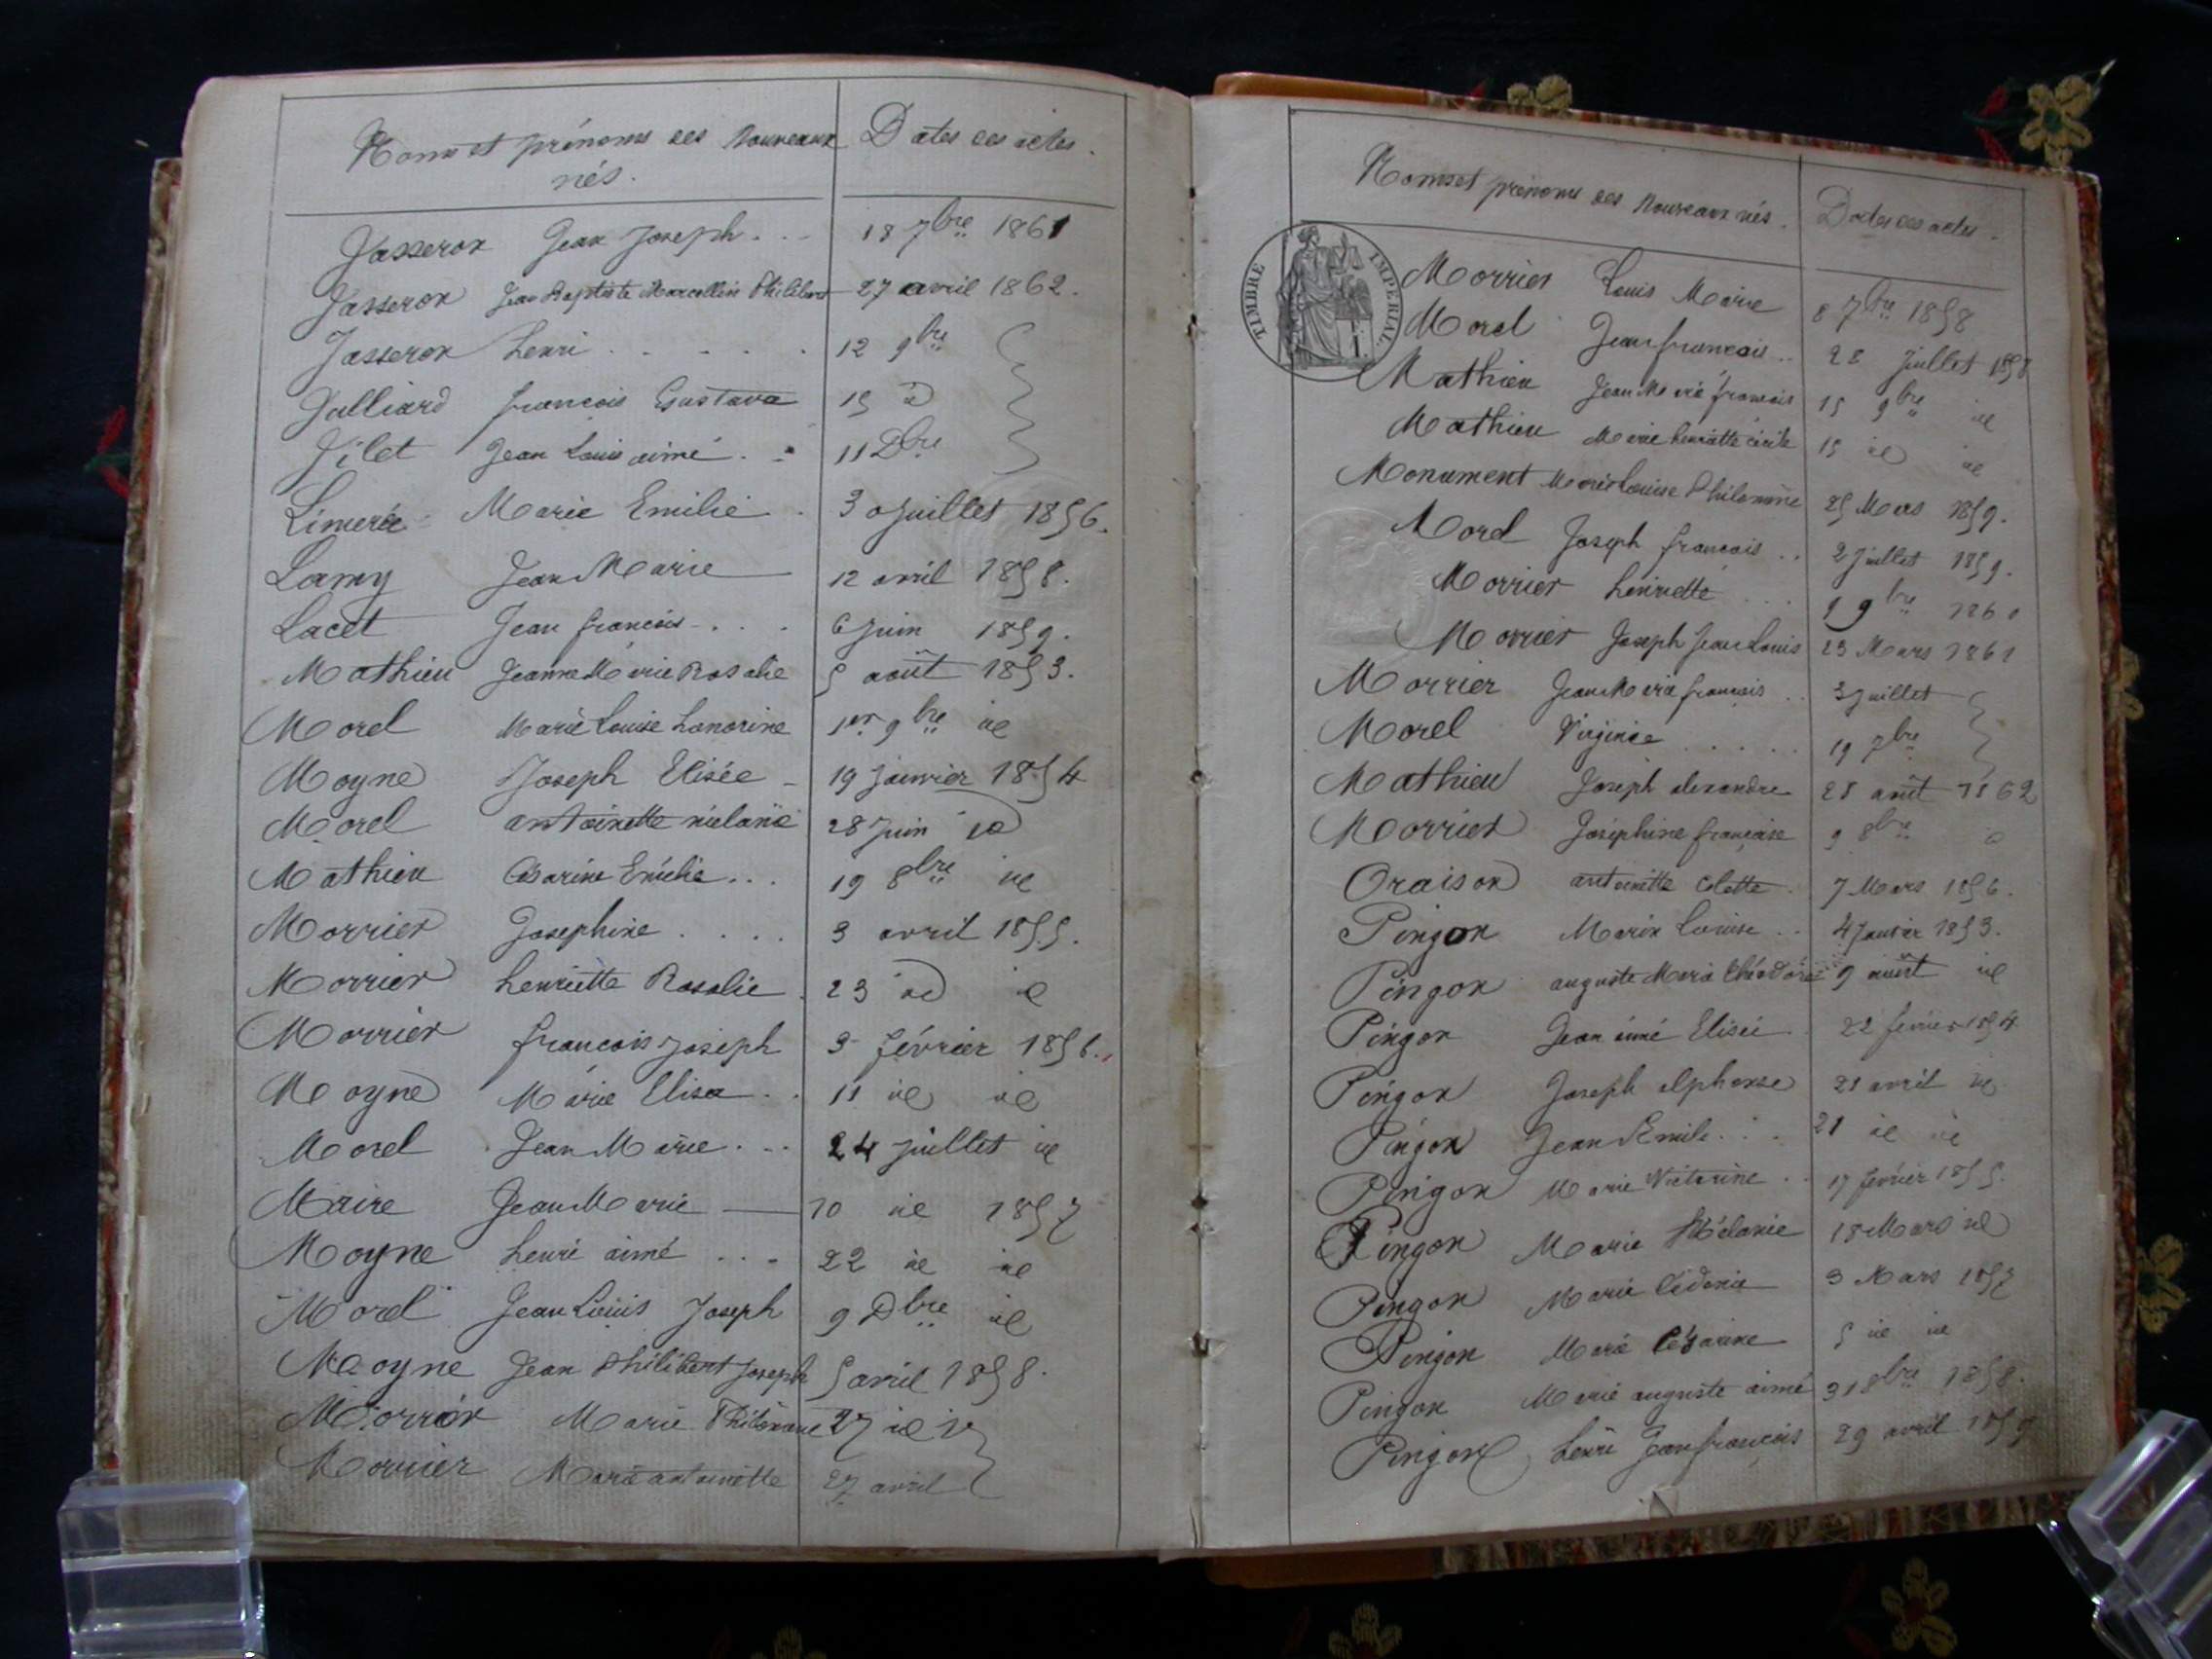 Noms et prénoms des Nouveaux Dates des actes.
nés.
Jasseron Jean Joseph... 18 7bre 1861
Jasseron Jean Baptiste Marcellin Philibert 27 avril 1862.
Jasseron henri..... 12 9bre
Julliard françois Gustave 15 d
Jilet Jean Louis aimé.. 11 Dbre
Limerée Marie Emilie. 30 juillet 1856.
Lamy Jean Marie 12 avril 1858.
Lacet Jean françois... 6 Juin 1859.
Mathieu Jeanne Marie Rosalie 5 août 1853.
Morel Marie Louise honorine 1er 9bre id
Moyne Joseph Elisée 19 janvier 1854
Morel antoinette mélanie 28 Juin id
Mathieu Emélie... 19 8bre id
Morrier Josephine.... 3 avril 1855.
Morrier henriette Rosalie. 23 id id
Morrier françois Joseph 3 février 1856.
Moyne Marie Elisa.. 11 id id
Morel Jean Marie... 24 juillet id
Maire Jean Marie 10 id 1857
Moyne henri aimé.... 22 id id
Morel Jean Louis Joseph 9 Dbre id
Moyne Jean Philibert Joseph 5 avril 1858.
Morrier Marie Philomène 27 id id
Morrier Marie antoinette 27 avril
Noms et prénoms des Nouveaux nés. Dates des actes.
TIMBRE IMPERIAL
Morrier Louis Marie 8 7bre 1858
Morel Jean françois.. 28 juillet 1858
Mathieu Jean Marie françois 15 9bre id
Mathieu Marie henriette 15 id id
Monument Marie Louise Philomène 25 Mars 1859.
Morel Joseph françois.. 2 Juillet 1859.
Morrier henriette... 1 9bre 1860
Morrier Joseph Jean Louis 23 Mars 1861
Morrier Jean Marie françois.. 3 Juillet
Morel Virginie..... 19 7bre
Mathieu Joseph alexandre 28 août 1862
Morrier Joséphine françoise 9 8bre d
Oraison antoinette Colette. 7 Mars 1856.
Pingon Marie Louise.. 4 Janvier 1853.
Pingon auguste Marie théodore 9 août id
Pingon Jean aimé Elisée. 22 février 1854
Pingon Joseph alphonse 21 avril id
Pingon Jean Emile... 21 id id
Pingon Marie Victorine.. 17 février 1855.
Pingon Marie Mélanie 18 Mars id
Pingon Marie 3 Mars 1857
Pingon Marie Césarine 5 id id
Pingon Marie auguste aimé 31 8bre 1858.
Pingon henri Jean françois 29 avril 1859